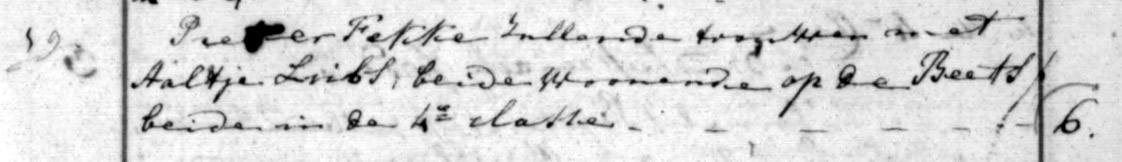 Pieter Fekke Zullende trouwen met
Aaltje Lubs, beide woonende op de Beets /
beide in de 4e classe - - - - - - 6.